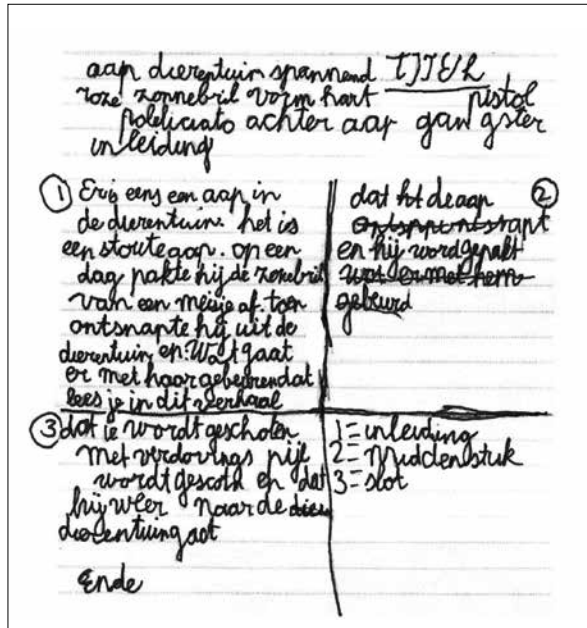 aap dierentuin spannend TJTEL
roze zonnebril vorm hart pistol
achter aap gangster
inleiding
1 Er is eens een aap in
de dierentuin. het is
een stoute aap. op een
dag pakte hij de zonebril
van een meisje af. toen
ontsnapte hij uit de
dierentuin en. Wat gaat
er met haar gebeuren dat
lees je in dit verhaal
2
dat de aap
en hij word gepakt
wat er met hem
gebeurd
3 dat ie wordt gescholen
met verdovings pijl
wordt en dat
hij weer naar de
dierentuin gaat
Ende
1 = inleiding
2 = Middenstuk
3 = slot